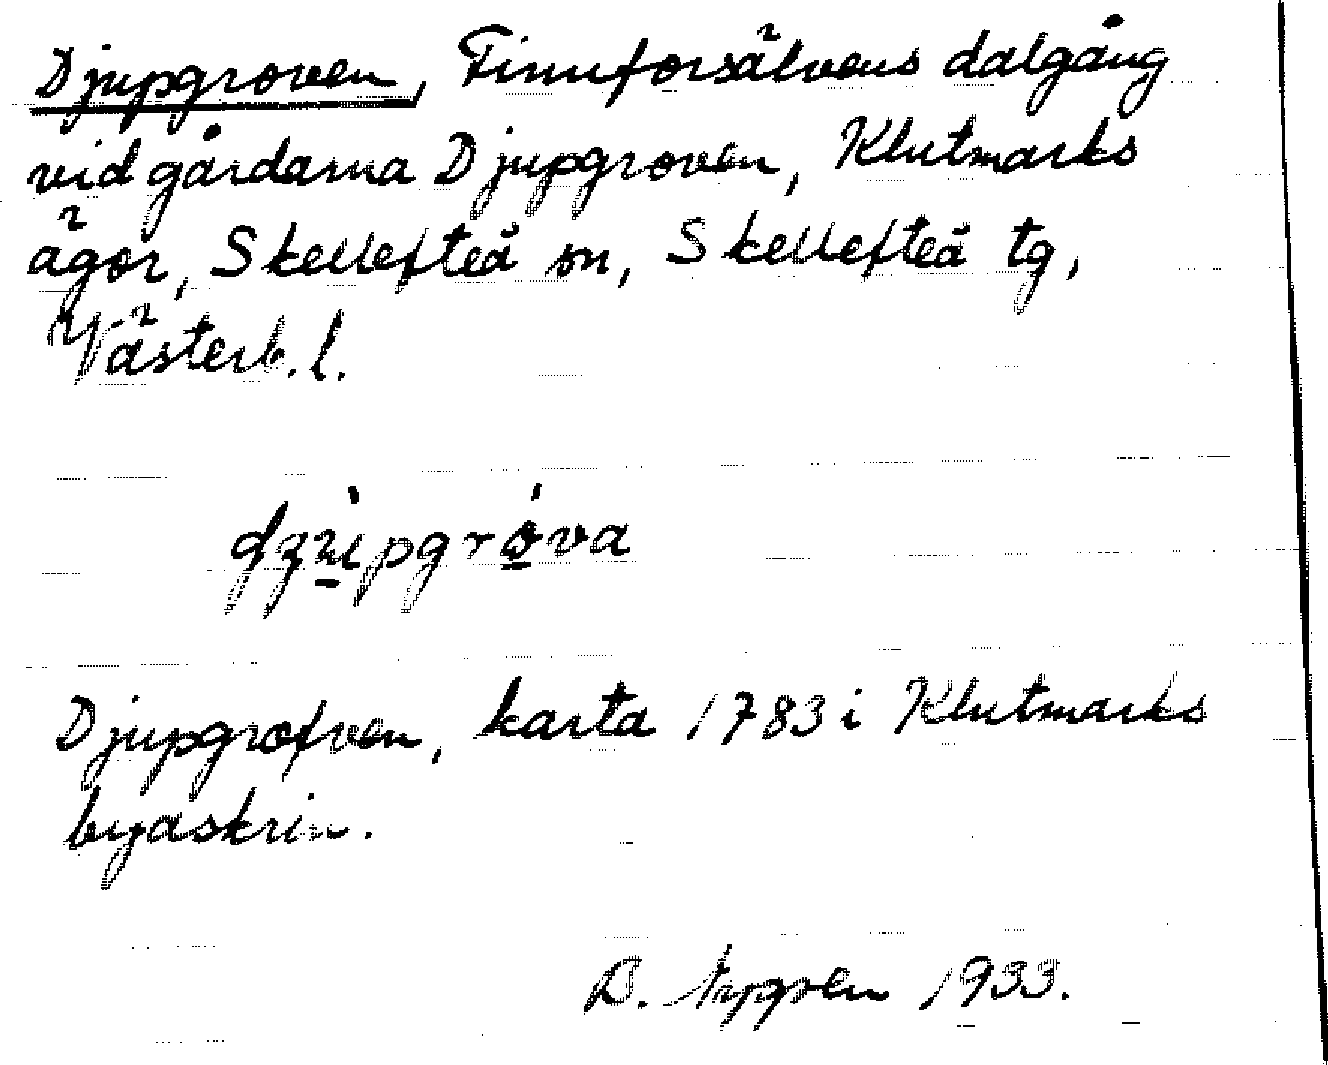 Djupgroven, Finnforsälvens dalgång
vid gårdarna Djupgroven, Klutmarks
ägor, Skellefteå sn, Skellefteå tg,
Västerb. l.
Djupgrofven, karta 1783 i Klutmarks
byaskrin.
B. Nygren 1933.